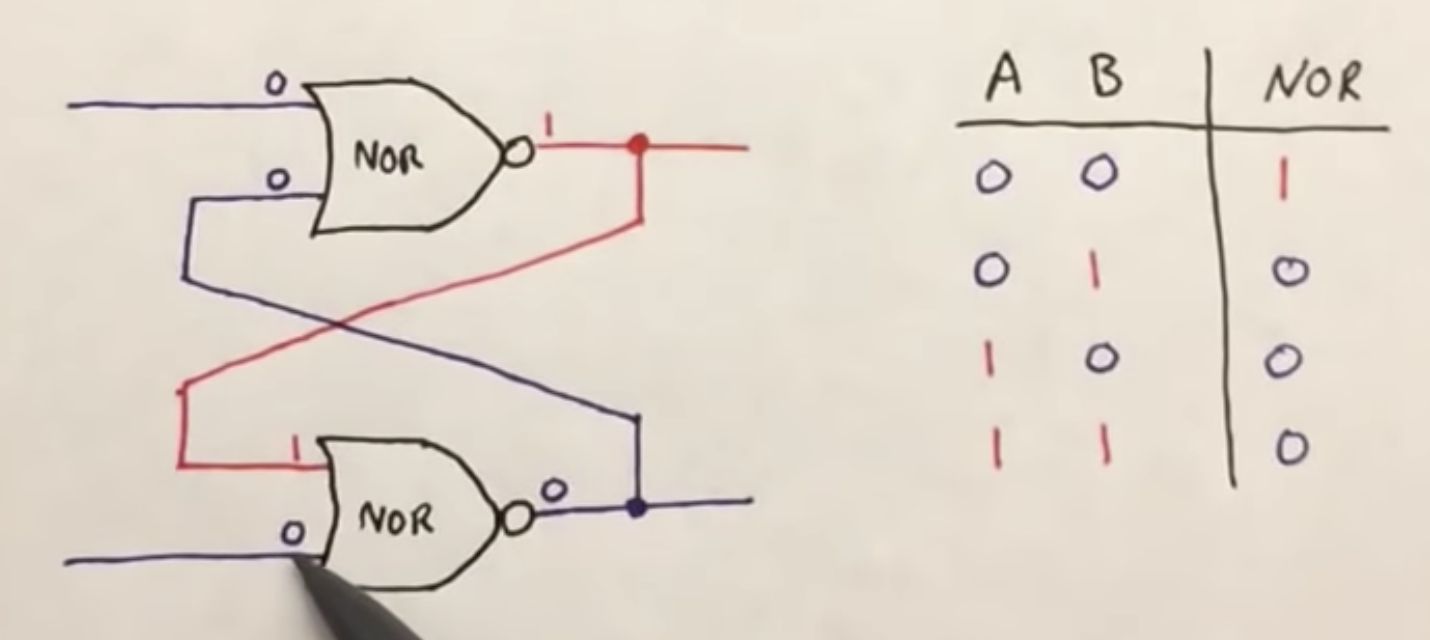 0
NOR 1
0
1
NOR 0
0
A B NOR
0 0 1
0 1 0
1 0 0
1 1 0